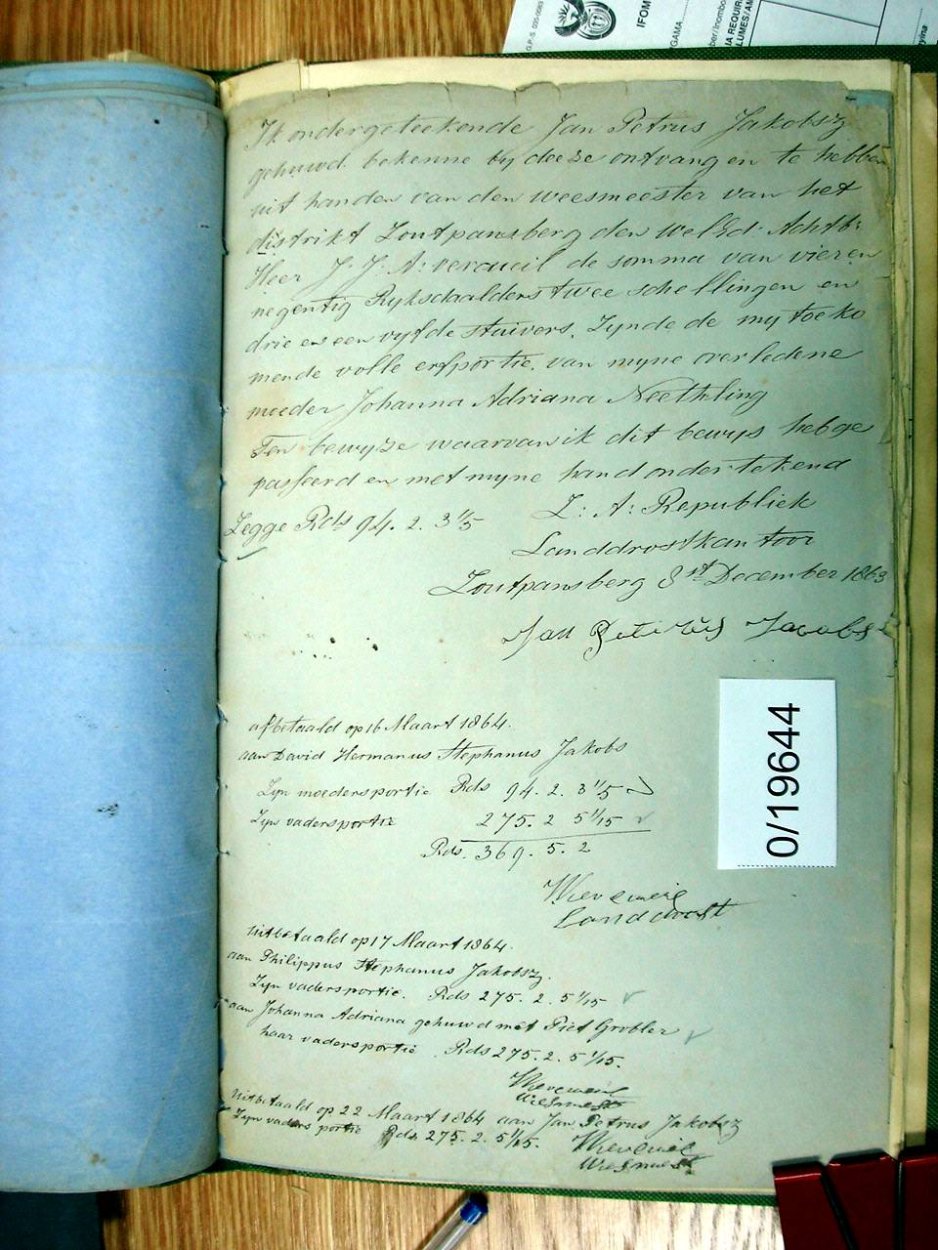 G.P.-S. 005-0063
IFOM
GAMA
Ik ondergeteekende Jan Petrus Jakobsz
gehuwd bekenne by deeze ontvangen te hebben
uit handen van den weesmeester van het
distrikt Zoutpansberg den WelEd: Achtb:
Heer J. J. A: vercueil de somma van vier en
negentig Ryksdaalders twee schellingen en
drie en een vyfde stuivers. Zynde de my toeko
mende volle erfportie, van myne overledene
moeder Johanna Adriana Neethling
Ten bewyze waarvan ik dit bewys heb ge
passeerd en met myne hand ondertekend
Zegge Rds 94. 2. 3 1/5 Z: A: Republiek
Landdrostkantoor
Zoutpansberg 8st December 1863
Jan Peterus Jacobs
afbetaald op 16 Maart 1864.
aan David Hermanus Stephanus Jakobs
Zyn moedersportie Rds 94. 2. 3 1/5
Zyn vadersportie 275. 2 5 1/15
Rds. 369. 5. 2
Vercueil
Landdrost
0/19644
uitbetaald op 17 Maart 1864.
aan Philippus Stephanus Jakobsz.
Zyn vadersportie. Rds 275. 2. 5 1/15
aan Johanna Adriana gehuwd met Piet Grobler
haar vadersportie Rds 275. 2. 5 1/15.
Vercueil
Weesmestr
uitbetaald op 22 Maart 1864 aan Jan Petrus Jakobsz
Zyn vaders portie Rds 275. 2. 5 1/15. Vercueil
Weesmestr